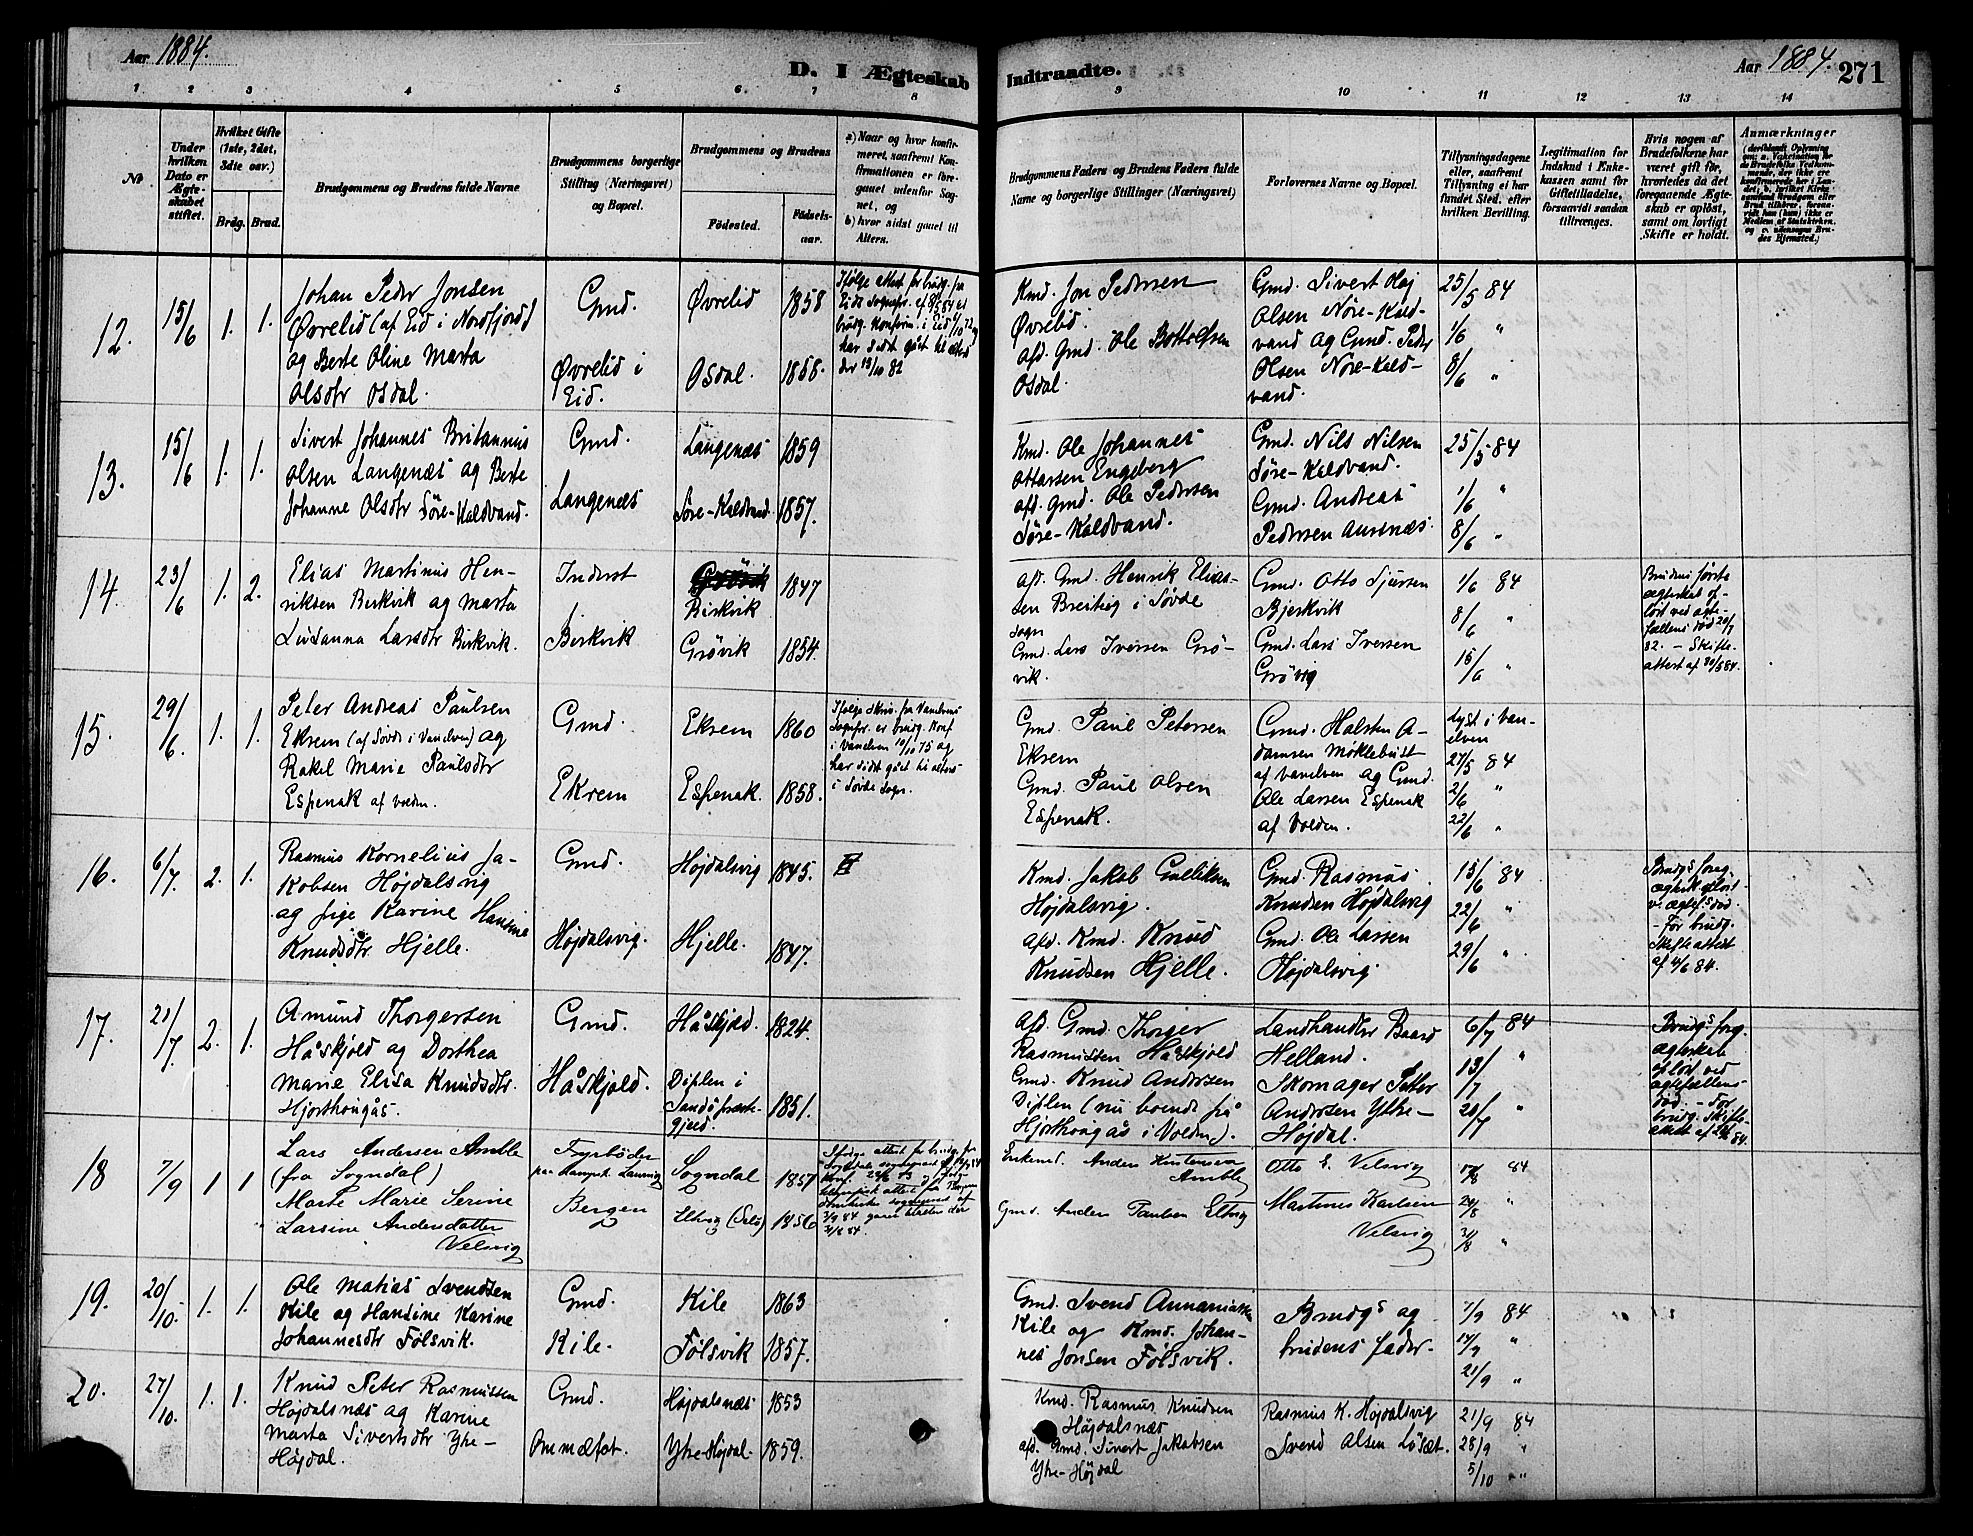 Aar 1884.
D. I Ægteskab
Indtraadte.
Aar 1884.
271
1 2 3 4 5 6 7 8 9 10 11 12 13 14
No
Under hvilken Dato er Ægteskabet stiftet.
Hvilket Gifte (1ste, 2det, 3die osv.)
Brdg. Brud.
Brudgommens og Brudens fulde Navne
Brudgommens borgerlige Stilling (Næringsvei) og Bopæl.
Brudgommens og Brudens
Fødested.
Fødselsaar.
a) Naar og hvor konfirmeret, saafremt Konfirmationen er foregaaet udenfor Sognet, og
b) hvor sidst gaaet til Alters.
Brudgommens Faders og Brudens Faders fulde Navne og borgerlige Stillinger (Næringsvei)
Forlovernes Navne og Bopæl.
Tillysningsdagene eller, saafremt Tillysning ei har fundet Sted, efter hvilken Bevilling.
Legitimation for Indskud i Enkekassen samt for Giftetilladelse, forsaavidt saadan tiltrænges.
Hvis nogen af Brudefolkene har været gift før, hvorledes da det foregaaende Ægteskab er opløst, samt om lovligt Skifte er holdt.
Anmærkninger
12.
15/6 1. 1.
Johan Peder Jonsen
Øvrelid (af Eid i Nordfjord)
og Berte Oline Marta
Olsdtr Osdal.
Gmd.
Øvrelid i
Eid.
Øvrelid 1858
Osdal. 1858.
Ifølge attest for brudg. fra
Eids Sognepr. af 8/5 84 er
brudg. konfirm. i Eid 6/10 72 og
har sidst gået til alters
der 18/10 82
Kmd. Jon Pedersen
Øvrelid.
afd. Gmd. Ole Bottolfsen
Osdal.
Gmd. Sivert Høj
Olsen Nøre-Kaldvand
og Gmd. Peder
Olsen Nøre-Kaldvand.
25/5 84
1/6 "
8/6 "
13.
15/6 1. 1.
Sivert Johannes Britannius
Olsen Langenæs og Berte
Johanne Olsdtr Søre-Kaldvand.
Gmd.
Langenæs
Langenæs 1859
Søre-Kaldvand 1857.
Kmd. Ole Johannes
Ottarsen Engeberg
afd. Gmd. Ole Pedersen
Søre-Kaldvand.
Gmd. Nils Nilsen
Søre-Kaldvand.
Gmd. Andreas
Pedersen Aurenæs.
25/5 84
1/6 "
8/6 "
14.
23/6 1. 2.
Elias Martinus Henriksen
Birkvik og Marta
Lusanna Larsdtr Birkvik.
Inderst
Birkvik
Birkvik 1847
Grövik 1854.
afd. Gmd. Henrik Eliassen
Breiteig i Søvde
Sogn
Gmd. Lars Iversen Grövik.
Gmd. Otto Sjursen
Bjerkvik
Gmd. Lars Iversen
Grövig
1/6 84
8/6 "
15/6 "
Brudens første
ægteskab opløst
ved ægtefællens
død 20/7
82. – Skifteattest
af 20/5 84.
15.
29/6. 1. 1.
Peter Andreas Paulsen
Eksem (af Søvde i Vanelven) og
Rakel Marie Paulsdtr
Espenak af Volden.
Gmd.
Ekrem
Eksem 1860
Espenak. 1858.
Ifølge Skriv. fra Vanelvens
Sognepr. er brudg. Konf
i Vanelven 10/10 75 og
har sidst gået til alters
i Søvde Sogn.
Gmd. Paul Petersen
Eksem
Gmd. Paul Olsen
Espenak.
Gmd. Halsten Adamsen
Møklebust
af Vanelven og Gmd.
Ole Larsen Espenak
af Volden.
Lyst i Vanelven
27/5 84
2/6 "
22/6 "
16.
6/7. 2. 1.
Rasmus Kornelius Jakobsen
Højdalsvig
og pige Karine Hansine
Knudsdtr Hjelle.
Gmd.
Højdalsvig.
Højdalsvig 1845.
Hjelle. 1847.
Kmd. Jakob Gulliksen
Højdalsvig.
afd. Kmd. Knud
Knudsen Hjelle.
Gmd. Rasmus
Knudsen Højdalsvig
Gmd. Ole Lassen
Højdalsvig.
15/6 84
22/6 "
29/6 "
Brudgs foreg.
ægtesk. opløst
v. ægtef's død.
– For brudg.
Skifteattest
af 4/6 84.
17.
21/7 2. 1.
Amund Thorgersen
Håskjold og Dorthea
Marie Elisa Knudsdtr.
Hjorthongås.
Gmd.
Håskjold.
Håskjold. 1824.
Diplen i
Sandö præstegjeld. 1851.
afd. Gmd. Thorger
Rasmussen Håskjold
Gmd. Knud Andersen
Diplen (nu boende på
Hjorthongås i Volden).
Landhandler Baard
Helland.
Skomager Petter
Andersen Ytre-
Højdal.
6/7 84
13/7 "
20/7 "
Brudgs forg.
ægteskab
opløst ved
ægtefællens
død. – For
brudg. Skifteattest
18
7/9 1 1
Lars Andersen Amble
(fra Sogndal)
Marte Marie Serine
Larsine Andersdatter
Velsvig
Fyrbøder
Bergen
Sogndal 1857
Eltvig (Selö) 1856
Enkemd. Anders Kristensen
Amble
Gmd. Anders Paulsen Eltvig
Otto E. Velsvig
Martinus Karlsen
Velsvig
17/8 84
24/8 "
31/8 "
19.
20/10. 1. 1.
Ole Matias Svendsen
Kile og Hansine Karine
Johannesdtr Følsvik.
Gmd.
Kile.
Kile 1863
Følsvik 1857.
Gmd. Svend Annaniassen
Kile og Kmd. Johannes
Jonsen Følsvik.
Brudgs og
brudens fader.
7/9 84
14/9 "
21/9 "
20.
27/10. 1. 1.
Knud Peter Rasmussen
Højdalsnæs og Karine
Marta Sivertsdtr Ytre-
Højdal.
Gmd.
Ommæfot.
Højdalsnæs 1853
Ytre-Højdal. 1859.
Kmd. Rasmus Knudsen
Højdalsnæs
afd. Gmd. Sivert Jakobsen
Ytre-Højdal
Rasmus K. Højdalsvig
Svend Olsen Løset.
21/9 84
28/9 "
5/10 "